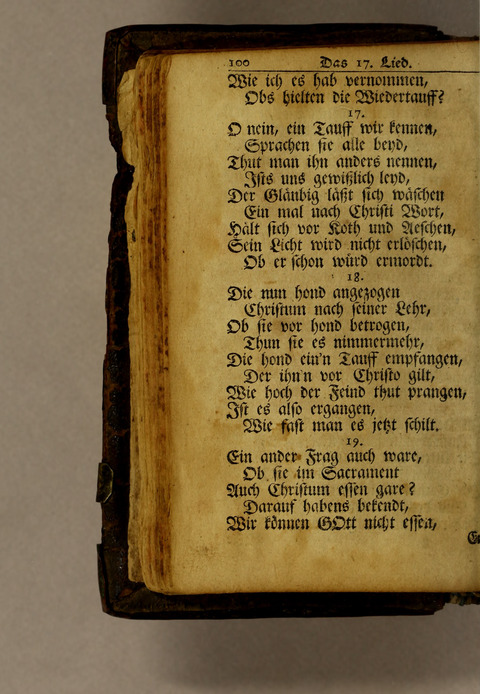 100 Das 17. Lied.
Wie ich es hab vernommen,
Obs hielten die Wiedertauff?
17.
O nein, ein Tauff wir kennen,
Sprachen sie alle beyd,
Thut man ihn anders nennen,
Ists uns gewißlich leyd,
Der Gläubig läßt sich wäschen
Ein mal nach Christi Wort,
Hält sich vor Koth und Aeschen,
Sein Licht wird nicht erlöschen,
Ob er schon würd ermordt.
18.
Die nun hond angezogen
Christum nach seiner Lehr,
Ob sie vor hond betrogen,
Thun sie es nimmermehr,
Die hond ein'n Tauff empfangen,
Der ihn'n vor Christo gilt,
Wie hoch der Feind thut prangen,
Ist es also ergangen,
Wie fast man es jetzt schilt.
19.
Ein ander Frag auch ware,
Ob sie im Sacrament
Auch Christum essen gare?
Darauf habens bekendt,
Wir können GOtt nicht essen,